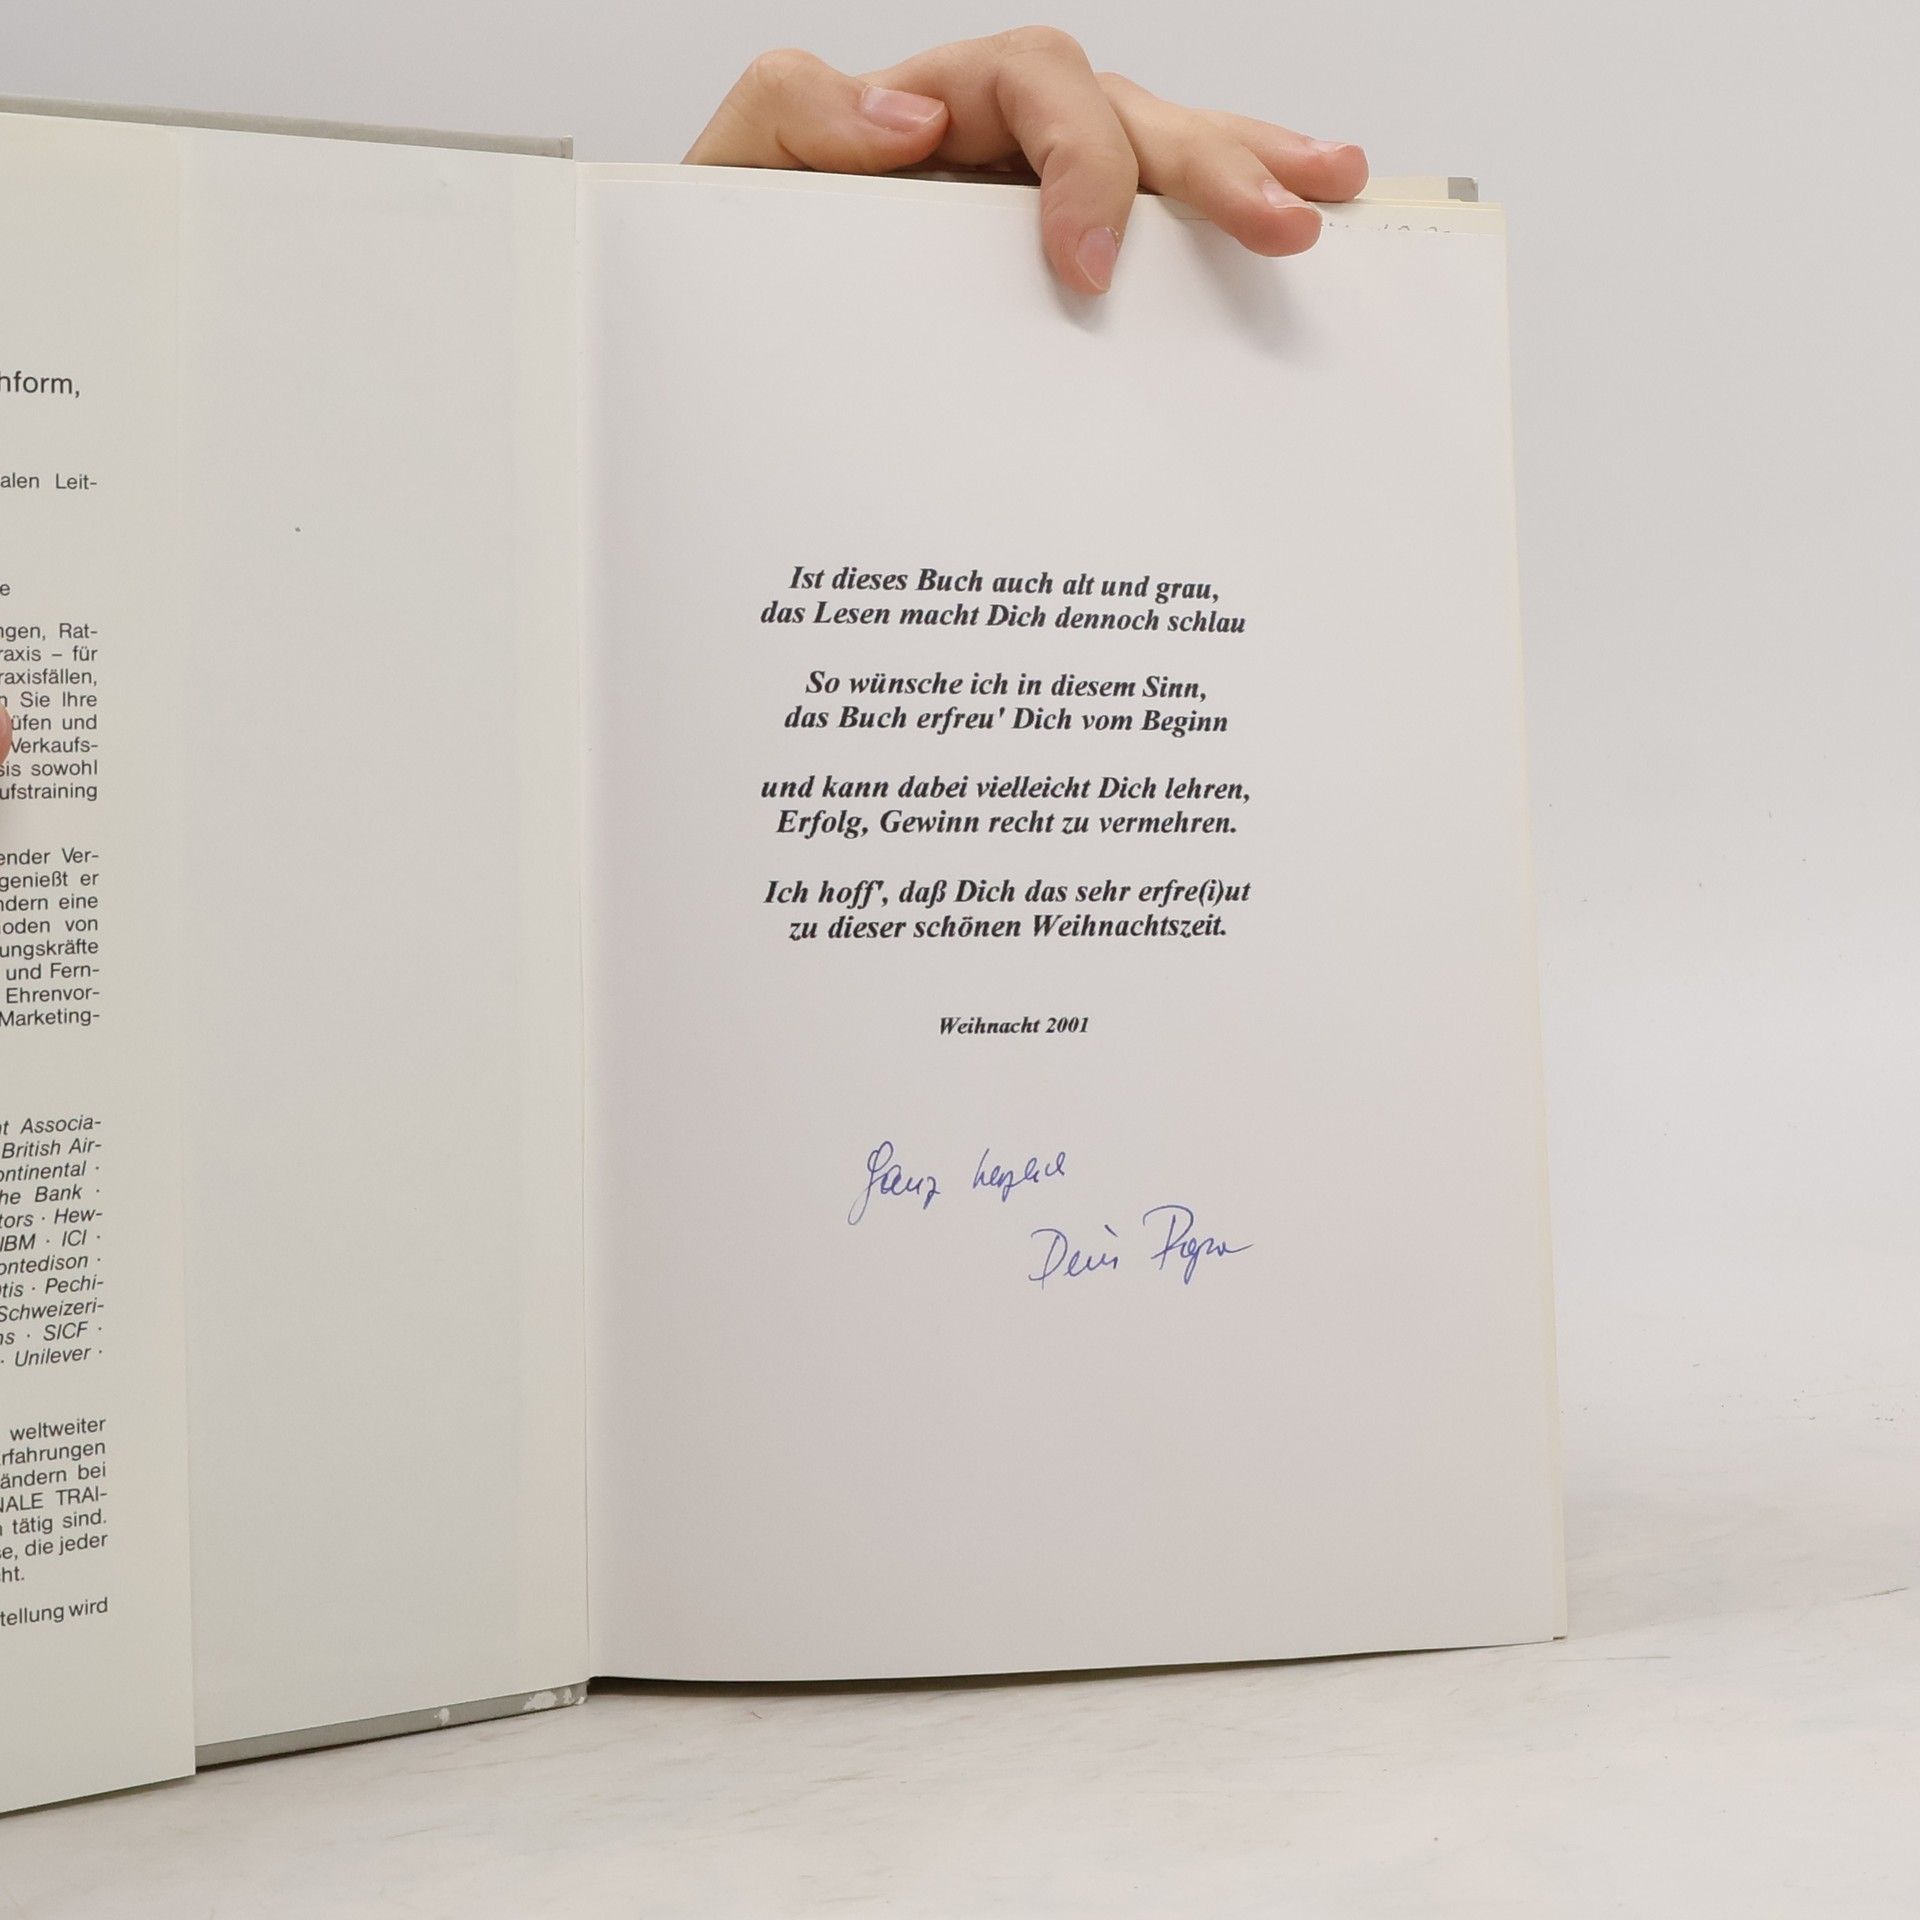 hform,
alen Leit-
e
ngen, Rat-
raxis – für
raxisfällen,
n Sie Ihre
üfen und
Verkaufs-
sis sowohl
ufstraining
ender Ver-
genießt er
ndern eine
oden von
ungskräfte
und Fern-
Ehrenvor-
Marketing-
nt Associa-
British Air-
ontinental ·
he Bank ·
tors · Hew-
IBM · ICI ·
ontedison ·
Otis · Pechi-
Schweizeri-
ns · SICF ·
· Unilever ·
weltweiter
rfahrungen
ändern bei
NALE TRAI-
n tätig sind.
se, die jeder
ht.
tellung wird
Ist dieses Buch auch alt und grau,
das Lesen macht Dich dennoch schlau
So wünsche ich in diesem Sinn,
das Buch erfreu' Dich vom Beginn
und kann dabei vielleicht Dich lehren,
Erfolg, Gewinn recht zu vermehren.
Ich hoff', daß Dich das sehr erfre(i)ut
zu dieser schönen Weihnachtszeit.
Weihnacht 2001
Ganz herzlich
Dein Papa